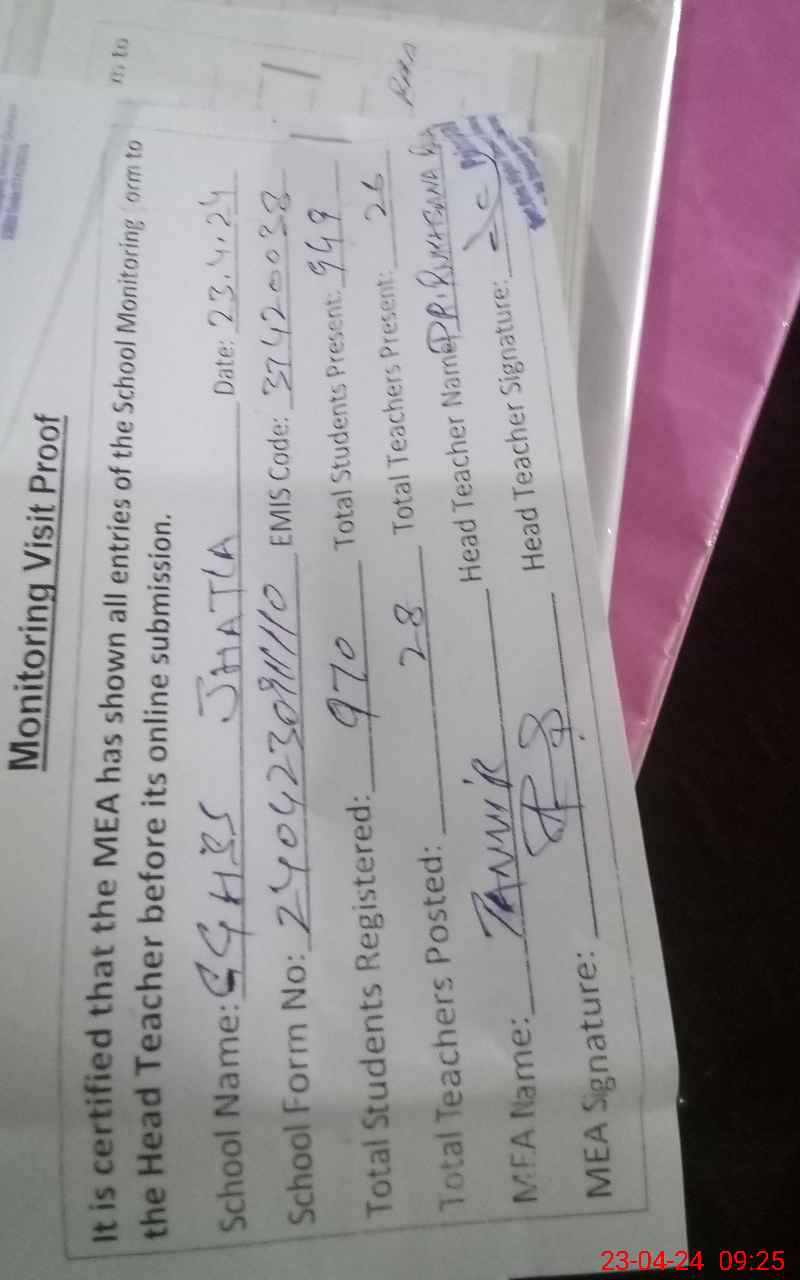 Monitoring Visit Proof
It is certified that the MEA has shown all entries of the School Monitoring orm to
m to
the Head Teacher before its online submission.
School Name: GGHSS JHATLA Date: 23.4.24
School Form No: 240423091110 EMIS Code: 37420038
Total Students Registered: 970 Total Students Present: 949
Total Teachers Posted: 28 Total Teachers Present: 26
MEA Name: TANVIR Head Teacher Name
MEA Signature: Head Teacher Signature:
23-04-24 09:25